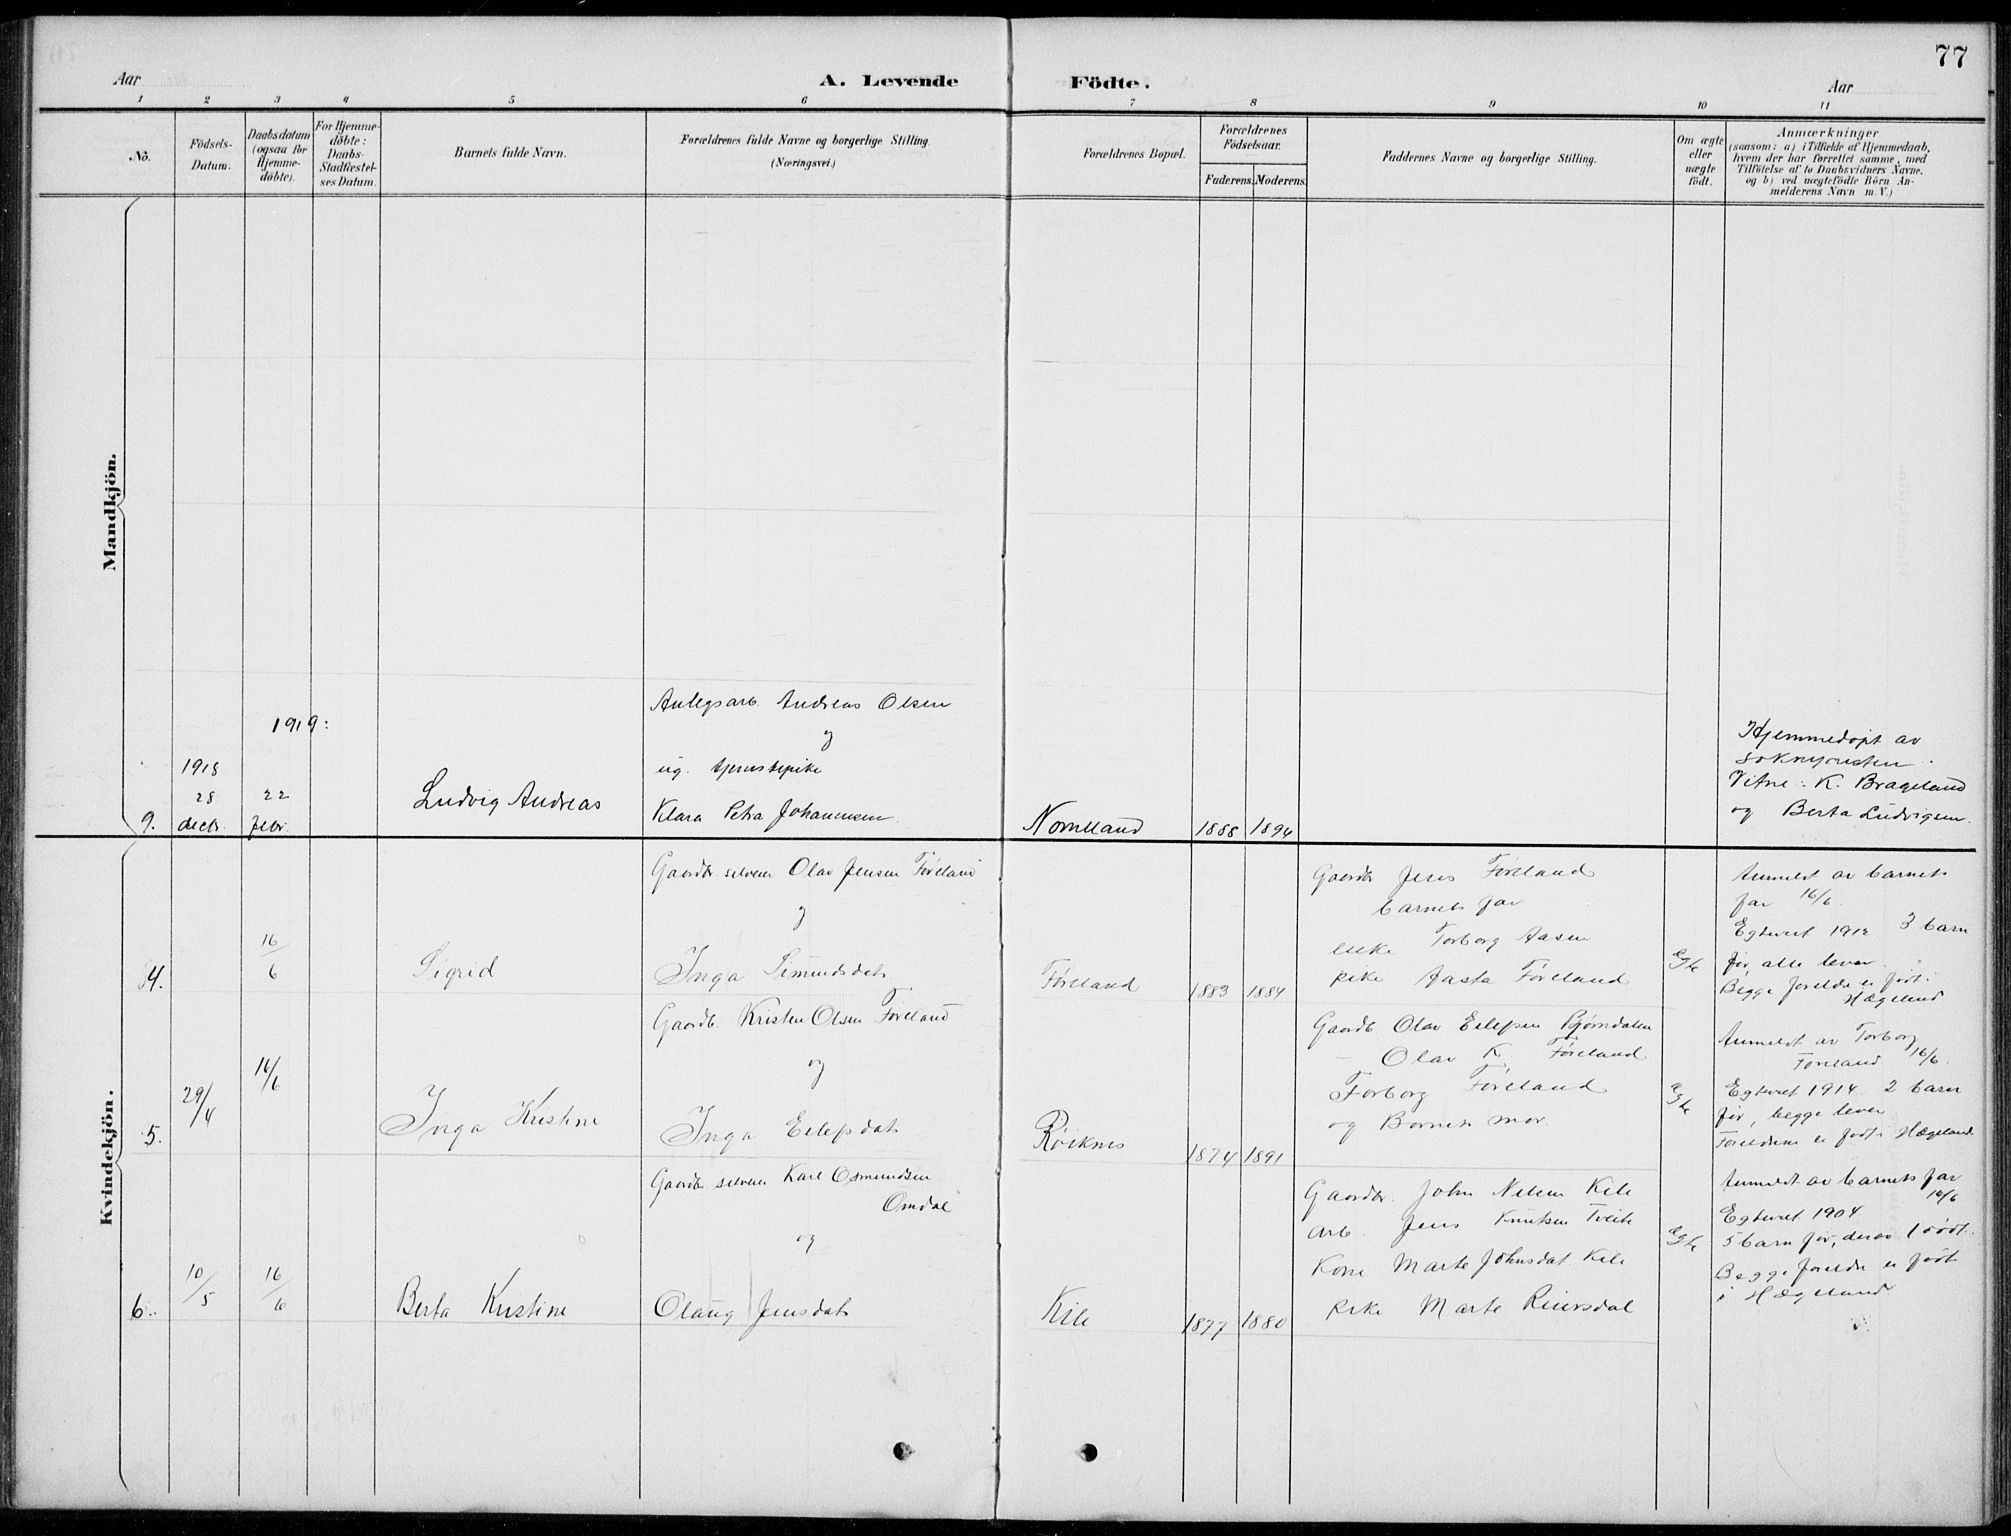 77
Aar
A. Levende Födte.
Aar
1 2 3 4 5 6 7 8 9 10 11
No.
Födsels-
Datum.
Daabsdatum
(ogsaa for
Hjemme-
döbte).
For Hjemme-
döbte:
Daabs-
Stadfæstel-
ses Datum.
Barnets fulde Navn.
Forældrenes fulde Navne og borgerlige Stilling.
(Næringsvei.)
Forældrenes Bopæl.
Forældrenes
Födselsaar.
Faderens. Moderens.
Faddernes Navne og borgerlige Stilling.
Om ægte
eller
uægte
födt.
Anmærkninger
(saasom: a) i Tilfælde af Hjemmedaab,
hvem der har forrettet samme, med
Tilföielse af to Daabsvidners Navne.
og b) ved uægtefödte Börn An-
melderens Navn m. V.)
Mandkjön.
1919:
9.
1918
28
decbr.
22
febr.
Ludvig Andreas
Anlegsarb. Andreas Olsen
og
ug. tjenestepike
Klara Petra Johannesen
Nomeland
1888 1894
Hjemmedøpt av
soknepresten.
Vitne: K. Brageland
og Berta Ludvigsen.
Kvindekjön.
4.
16/6
Sigrid
Gaardbr selveier Olav Jensen Føreland
og
Inga Simundsdat.
Føreland
1883 1884
Gaardbr Jens Føreland
barnets far
enke Torborg Aasen
pike Aasta Føreland
egte
Anmeldt av barnets
far 16/6.
Egteviet 1912 3 barn
før, alle lever.
Begge foreldre er født i
Hægeland
5.
29/4
16/6
Inga Kristine
Gaardb. Kristen Olsen Føreland
og
Inga Eilefsdat.
Røiknes
1874 1891
Gaardb Olav Eilefsen Bjørndalen
– Olav K. Føreland
Torborg Føreland
og Barnets mor.
egte
Anmeldt av Torborg
Føreland 16/6.
Egteviet 1914 2 barn
før, begge lever
Foreldrene er født i Hægeland.
6.
10/5
16/6
Berta Kristine
Gaardbr selveier Karl Osmundsen
Omdal
og
Olaug Jensdat.
Kile
1877 1880
Gaardbr. John Nilsen Kile
Arb. Jens Knutsen Tveite
Kone Marte Johnsdat. Kile
pike Marte Reiersdal
egte
Anmeldt av barnets far
16/6
Egteviet 1904.
5 barn før, derav 1 død.
Begge foreldre er født
i Hægeland